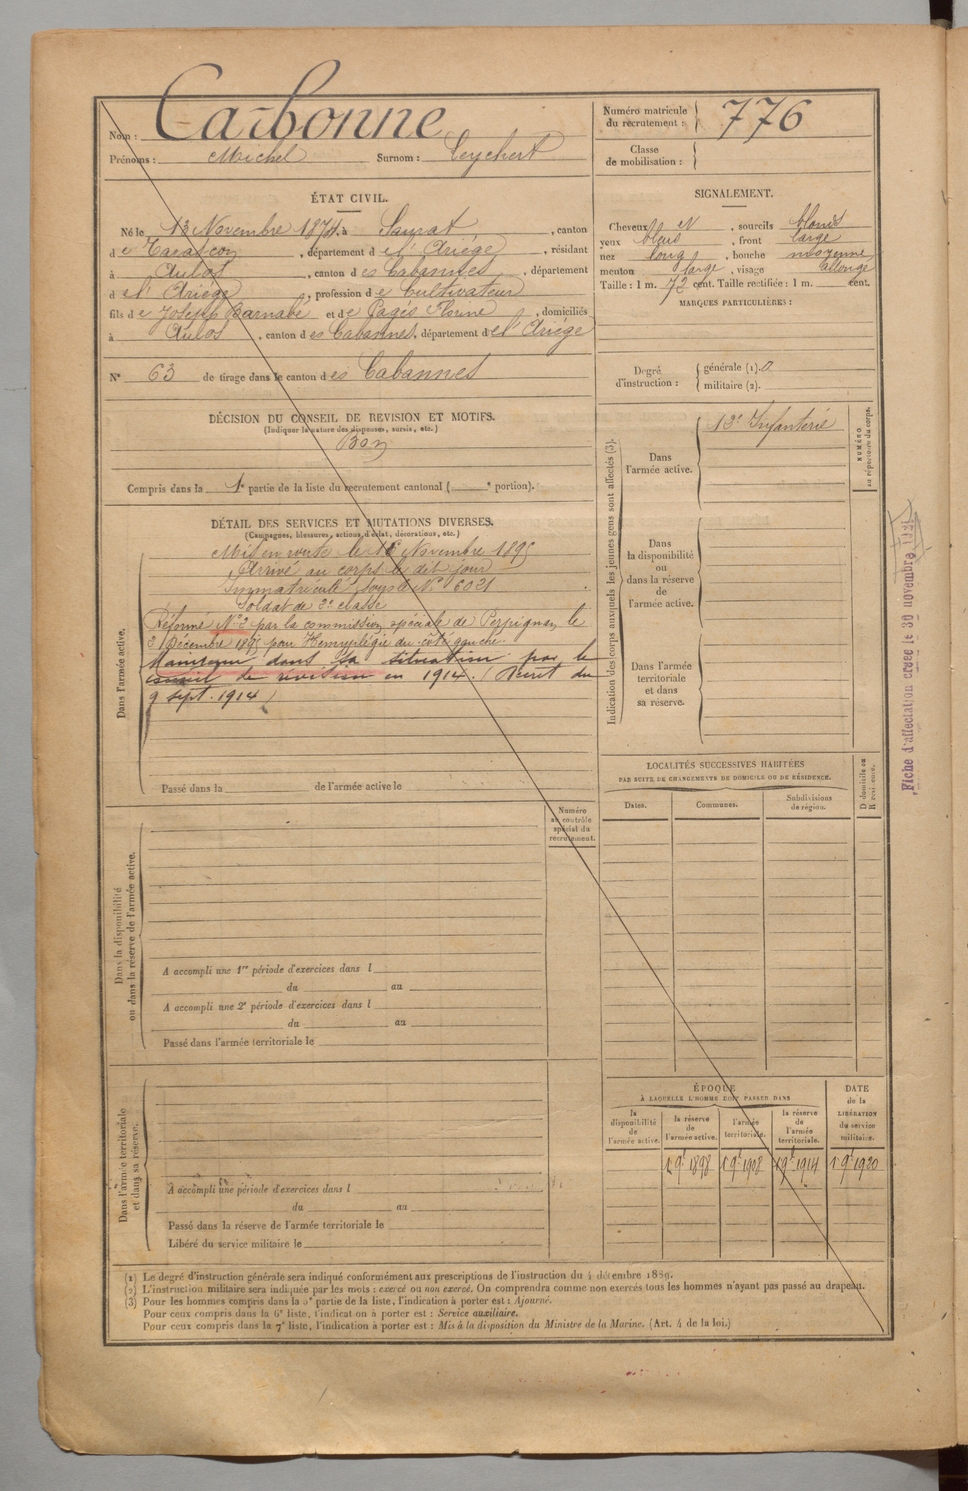 Nom : Carbonne
Prénoms : Michel Surnom : Teychert
Numéro matricule du recrutement : 776
Classe de mobilisation :
ÉTAT CIVIL.
Né le 13 Novembre 1874, à Saurat, canton
de Tarascon, département de l'Ariége, résidant
à Aulos, canton des Cabannes, département
de l'Ariége, profession de Cultivateur
fils de Joseph Barnabé et de Pagés Florine, domiciliés
à Aulos, canton des Cabannes, département de l'Ariége
N° 63 de tirage dans le canton des Cabannes
SIGNALEMENT.
Cheveux N, sourcils blonds
yeux bleus, front large
nez long, bouche moyenne
menton large, visage allongé
Taille : 1 m. 72 cent. Taille rectifiée : 1 m. cent.
MARQUES PARTICULIÈRES :
Degré d'instruction : générale (1). 0
militaire (2).
DÉCISION DU CONSEIL DE REVISION ET MOTIFS.
(Indiquer la nature des dispenses, sursis, etc.)
Bon
Compris dans la 1e partie de la liste du recrutement cantonal ( e portion).
DÉTAIL DES SERVICES ET MUTATIONS DIVERSES.
(Campagnes, blessures, actions d'éclat, décorations, etc.)
Dans l'armée active.
Mis en route le 16 Novembre 1895
Arrivé au corps le dit jour
Immatriculé sous le N° 6021
Soldat de 2e classe
Réformé N° 2 par la commission spéciale de Perpignan le
31 Décembre 1895 pour Hemyplégie du côté gauche.
Maintenu dans sa situation par le
conseil de révision en 1914. (Décret du
9 sept. 1914)
Passé dans la de l'armée active le
Dans la disponibilité
ou dans la réserve de l'armée active.
Numéro
au contrôle
spécial du
recrutement.
A accompli une 1re période d'exercices dans l
du au
A accompli une 2e période d'exercices dans l
du au
Passé dans l'armée territoriale le
Dans l'armée territoriale
et dans sa réserve.
A accompli une période d'exercices dans l
du au
Passé dans la réserve de l'armée territoriale le
Libéré du service militaire le
Indication des corps auxquels les jeunes gens sont affectés (3).
NUMÉRO
au répertoire du corps.
Dans
l'armée active.
13e Infanterie
Dans
la disponibilité
ou
dans la réserve
de
l'armée active.
Dans l'armée
territoriale
et dans
sa réserve.
LOCALITÉS SUCCESSIVES HABITÉES
PAR SUITE DE CHANGEMENTS DE DOMICILE OU DE RÉSIDENCE.
Dates.
Communes.
Subdivisions
de région.
D domicile ou
R résidence.
ÉPOQUE
À LAQUELLE L'HOMME DOIT PASSER DANS
DATE
de la
LIBÉRATION
du service
militaire.
la
disponibilité
de
l'armée active.
la réserve
de
l'armée active.
l'armée
territoriale.
la réserve
de
l'armée
territoriale.
1 9e 1898 1 9e 1908 1 9e 1914 1 9e 1920
Fiche d'affectation créée le 30 novembre 1921
(1) Le degré d'instruction générale sera indiqué conformément aux prescriptions de l'instruction du 4 décembre 1889.
(2) L'instruction militaire sera indiquée par les mots : exercé ou non exercé. On comprendra comme non exercés tous les hommes n'ayant pas passé au drapeau.
(3) Pour les hommes compris dans la 5e partie de la liste, l'indication à porter est : Ajourné.
Pour ceux compris dans la 6e liste, l'indication à porter est : Service auxiliaire.
Pour ceux compris dans la 7e liste, l'indication à porter est : Mis à la disposition du Ministre de la Marine. (Art. 4 de la loi.)